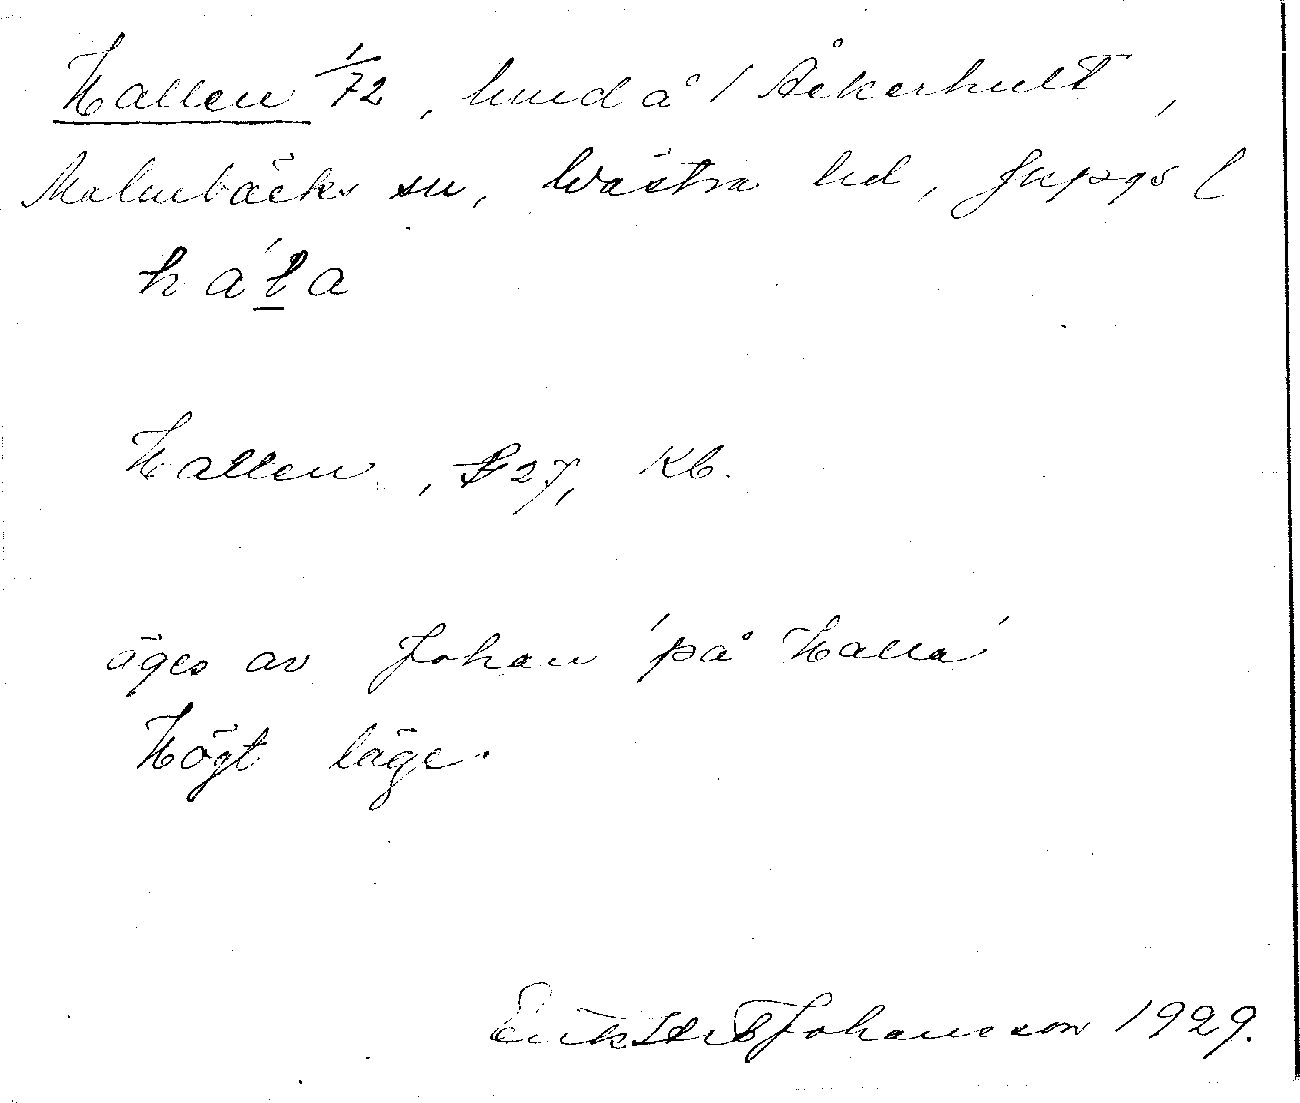 Hallen 1/72, hmd å 1 Åkerhult,
Malmbäcks sn, Västra hd, Jkpgs l
háḻa
Hallen, § 27, Kb.
äges av Johan 'på Halla'
Högt läge.
Erik Johansson 1929.